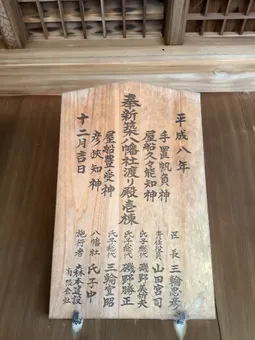 平成八年
手置帆負神
屋船久々能知神
奉新築八幡社渡り殿壱棟
屋船豊受神
彦狭知神
十二月吉日
区長 三輪忠彦
責任役員 山田宮司
氏子総代 磯野義夫
氏子総代 磯野勝正
氏子総代 三輪宣昭
八幡社 氏子中
施行者 森本建設有限会社